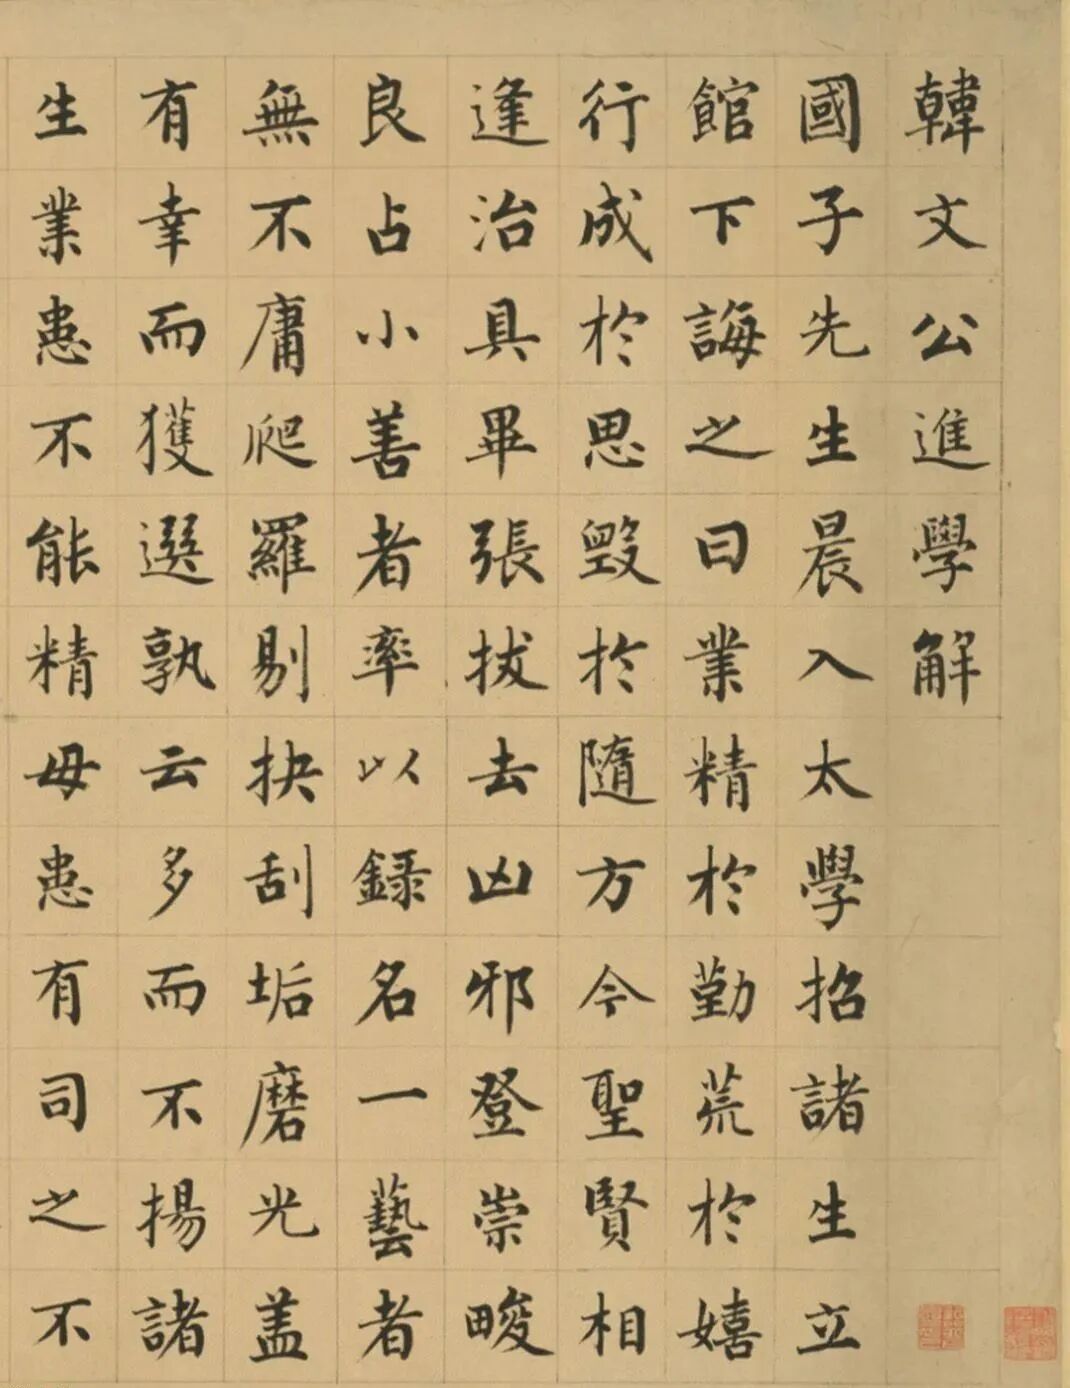 韓文公進學解
國子先生晨入太學招諸生立
館下誨之曰業精於勤荒於嬉
行成於思毀於隨方今聖賢相
逢治具畢張拔去凶邪登崇畯
良占小善者率以錄名一藝者
無不庸爬羅剔抉刮垢磨光盖
有幸而獲選孰云多而不揚諸
生業患不能精毋患有司之不